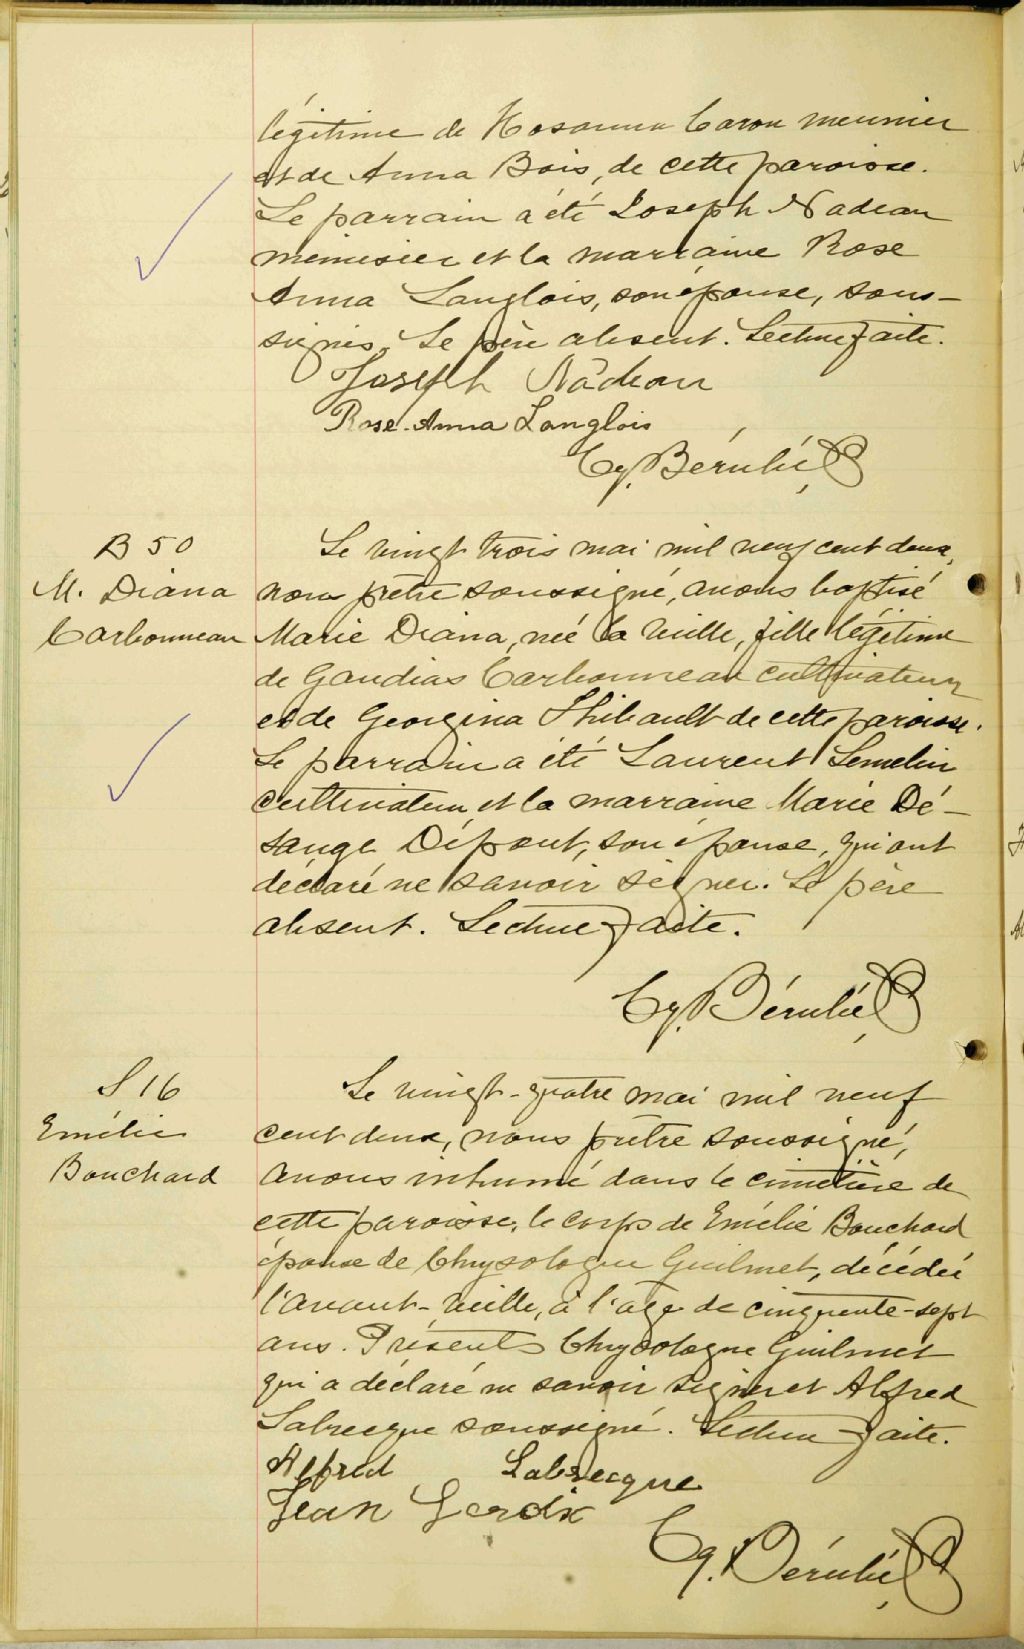 légitime de Hosanna Caron meunier
et de Anna Bois, de cette paroisse.
Le parrain a été Joseph Nadeau
menuisier et la marraine Rose
Anna Langlois, son épouse, sous-
signés. Le père absent. Lecture faite.
Joseph Nadeau
Rose-Anna Langlois
Cy. Bérubé
B 50
M. Diana
Carbonneau
Le vingt trois mai mil neuf cent deux,
nous prêtre soussigné, avons baptisé
Marie Diana, née la veille, fille légitime
de Gaudias Carbonneau cultivateur
et de Georgina Thibault de cette paroisse.
Le parrain a été Laurent Lemelin
cultivateur et la marraine Marie Dé-
sange Dépont, son épouse, qui ont
déclaré ne savoir signer. Le père
absent. Lecture faite.
Cy. Bérubé
S 16
Emélie
Bouchard
Le vingt-quatre mai mil neuf
cent deux, nous prêtre soussigné,
avons inhumé dans le cimetière de
cette paroisse, le corps de Emélie Bouchard
épouse de Chrysologue Guilmet, décédée
l'avant-veille, à l'age de cinquante-sept
ans. Présents Chrysologue Guilmet
qui a déclaré ne savoir signer et Alfred
Labrecque soussigné. Lecture faite.
Alfred Labrecque
Jean
Cy. Bérubé